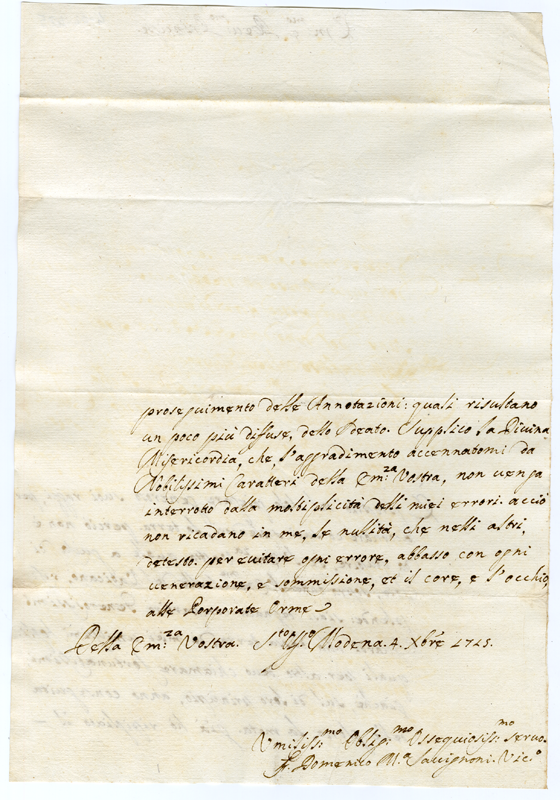 proseguimento delle Annotazioni: quali risultano
un poco più diffuse, dello Ideato. Supplico la Divina
Misericordia, che, l'aggradimento accennatomi da
Nobilissimi Caratteri della Em:za Vostra, non venga
interrotto dalla moltiplicità delli miei errori. acciò
non ricadano in me, le nullità, che nelli altri,
detesto. per evitare ogni errore, abbasso con ogni
venerazione, e sommissione, et il core, e l'occhio,
alle Porporate Orme
Della Em:za Vostra. S.to Modena. 4. Xbre 1715.
Umiliss:mo Oblig:mo Ossequiosiss:mo Servo.
F. Domenico M.a Savignoni. Vic.o